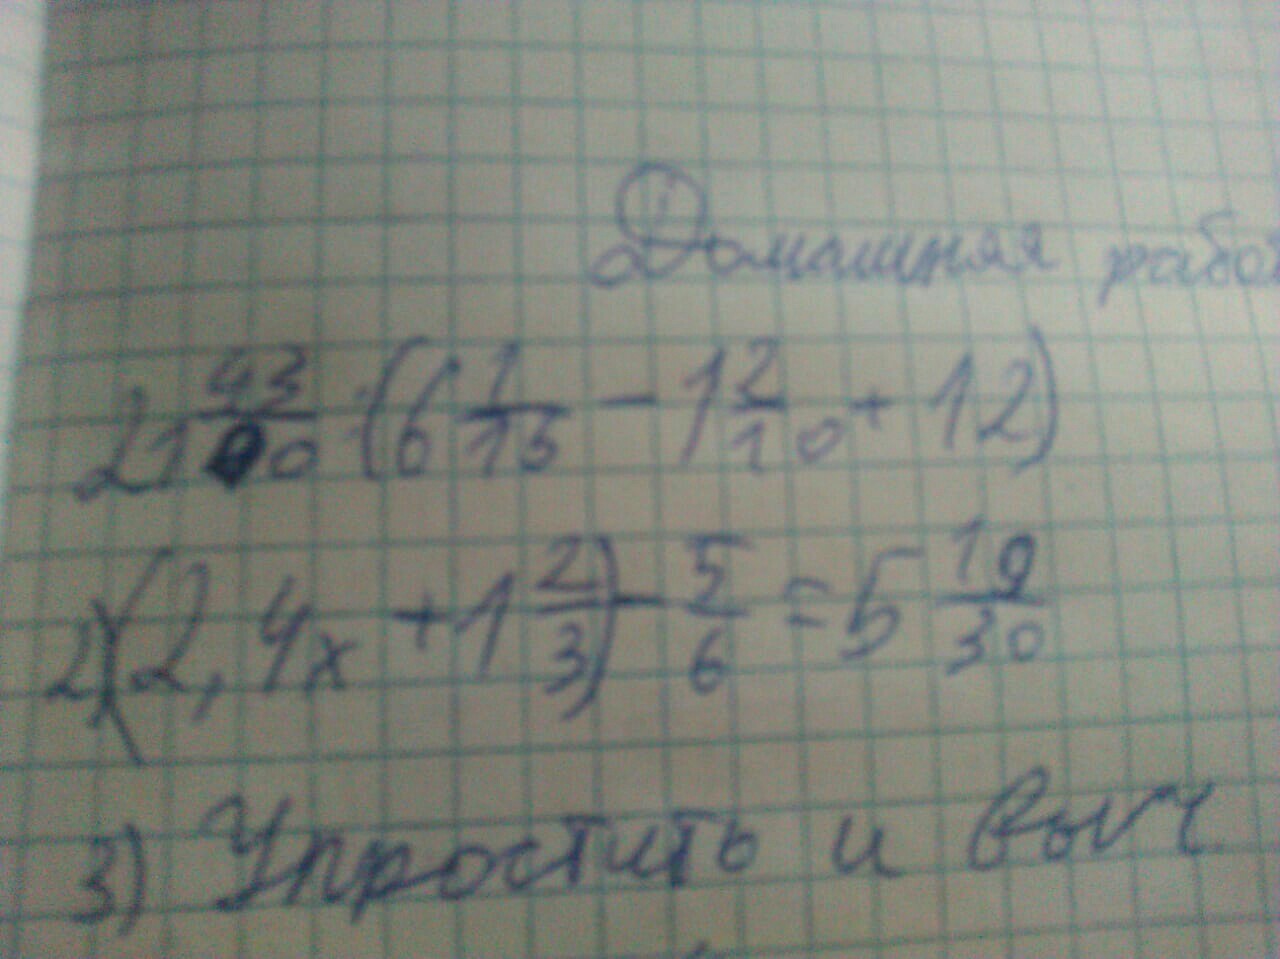 Домашняя работ
21 43/90 : (6 1/15 - 1 2/10 + 12)
2) (2,4x + 1 2/3) - 5/6 = 5 19/30
3) Упростить и выч